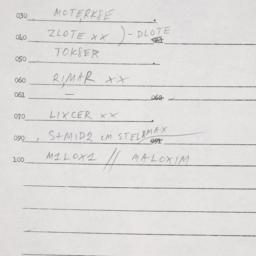 030 MOTERKSE
040 ZLOTE XX ) - DLOTE
050 TOKSER
060 RIMAR XX
061 —
070 LIXCER XX
090 S+MID2 IM
100 M1LOX1 // MALOXIM